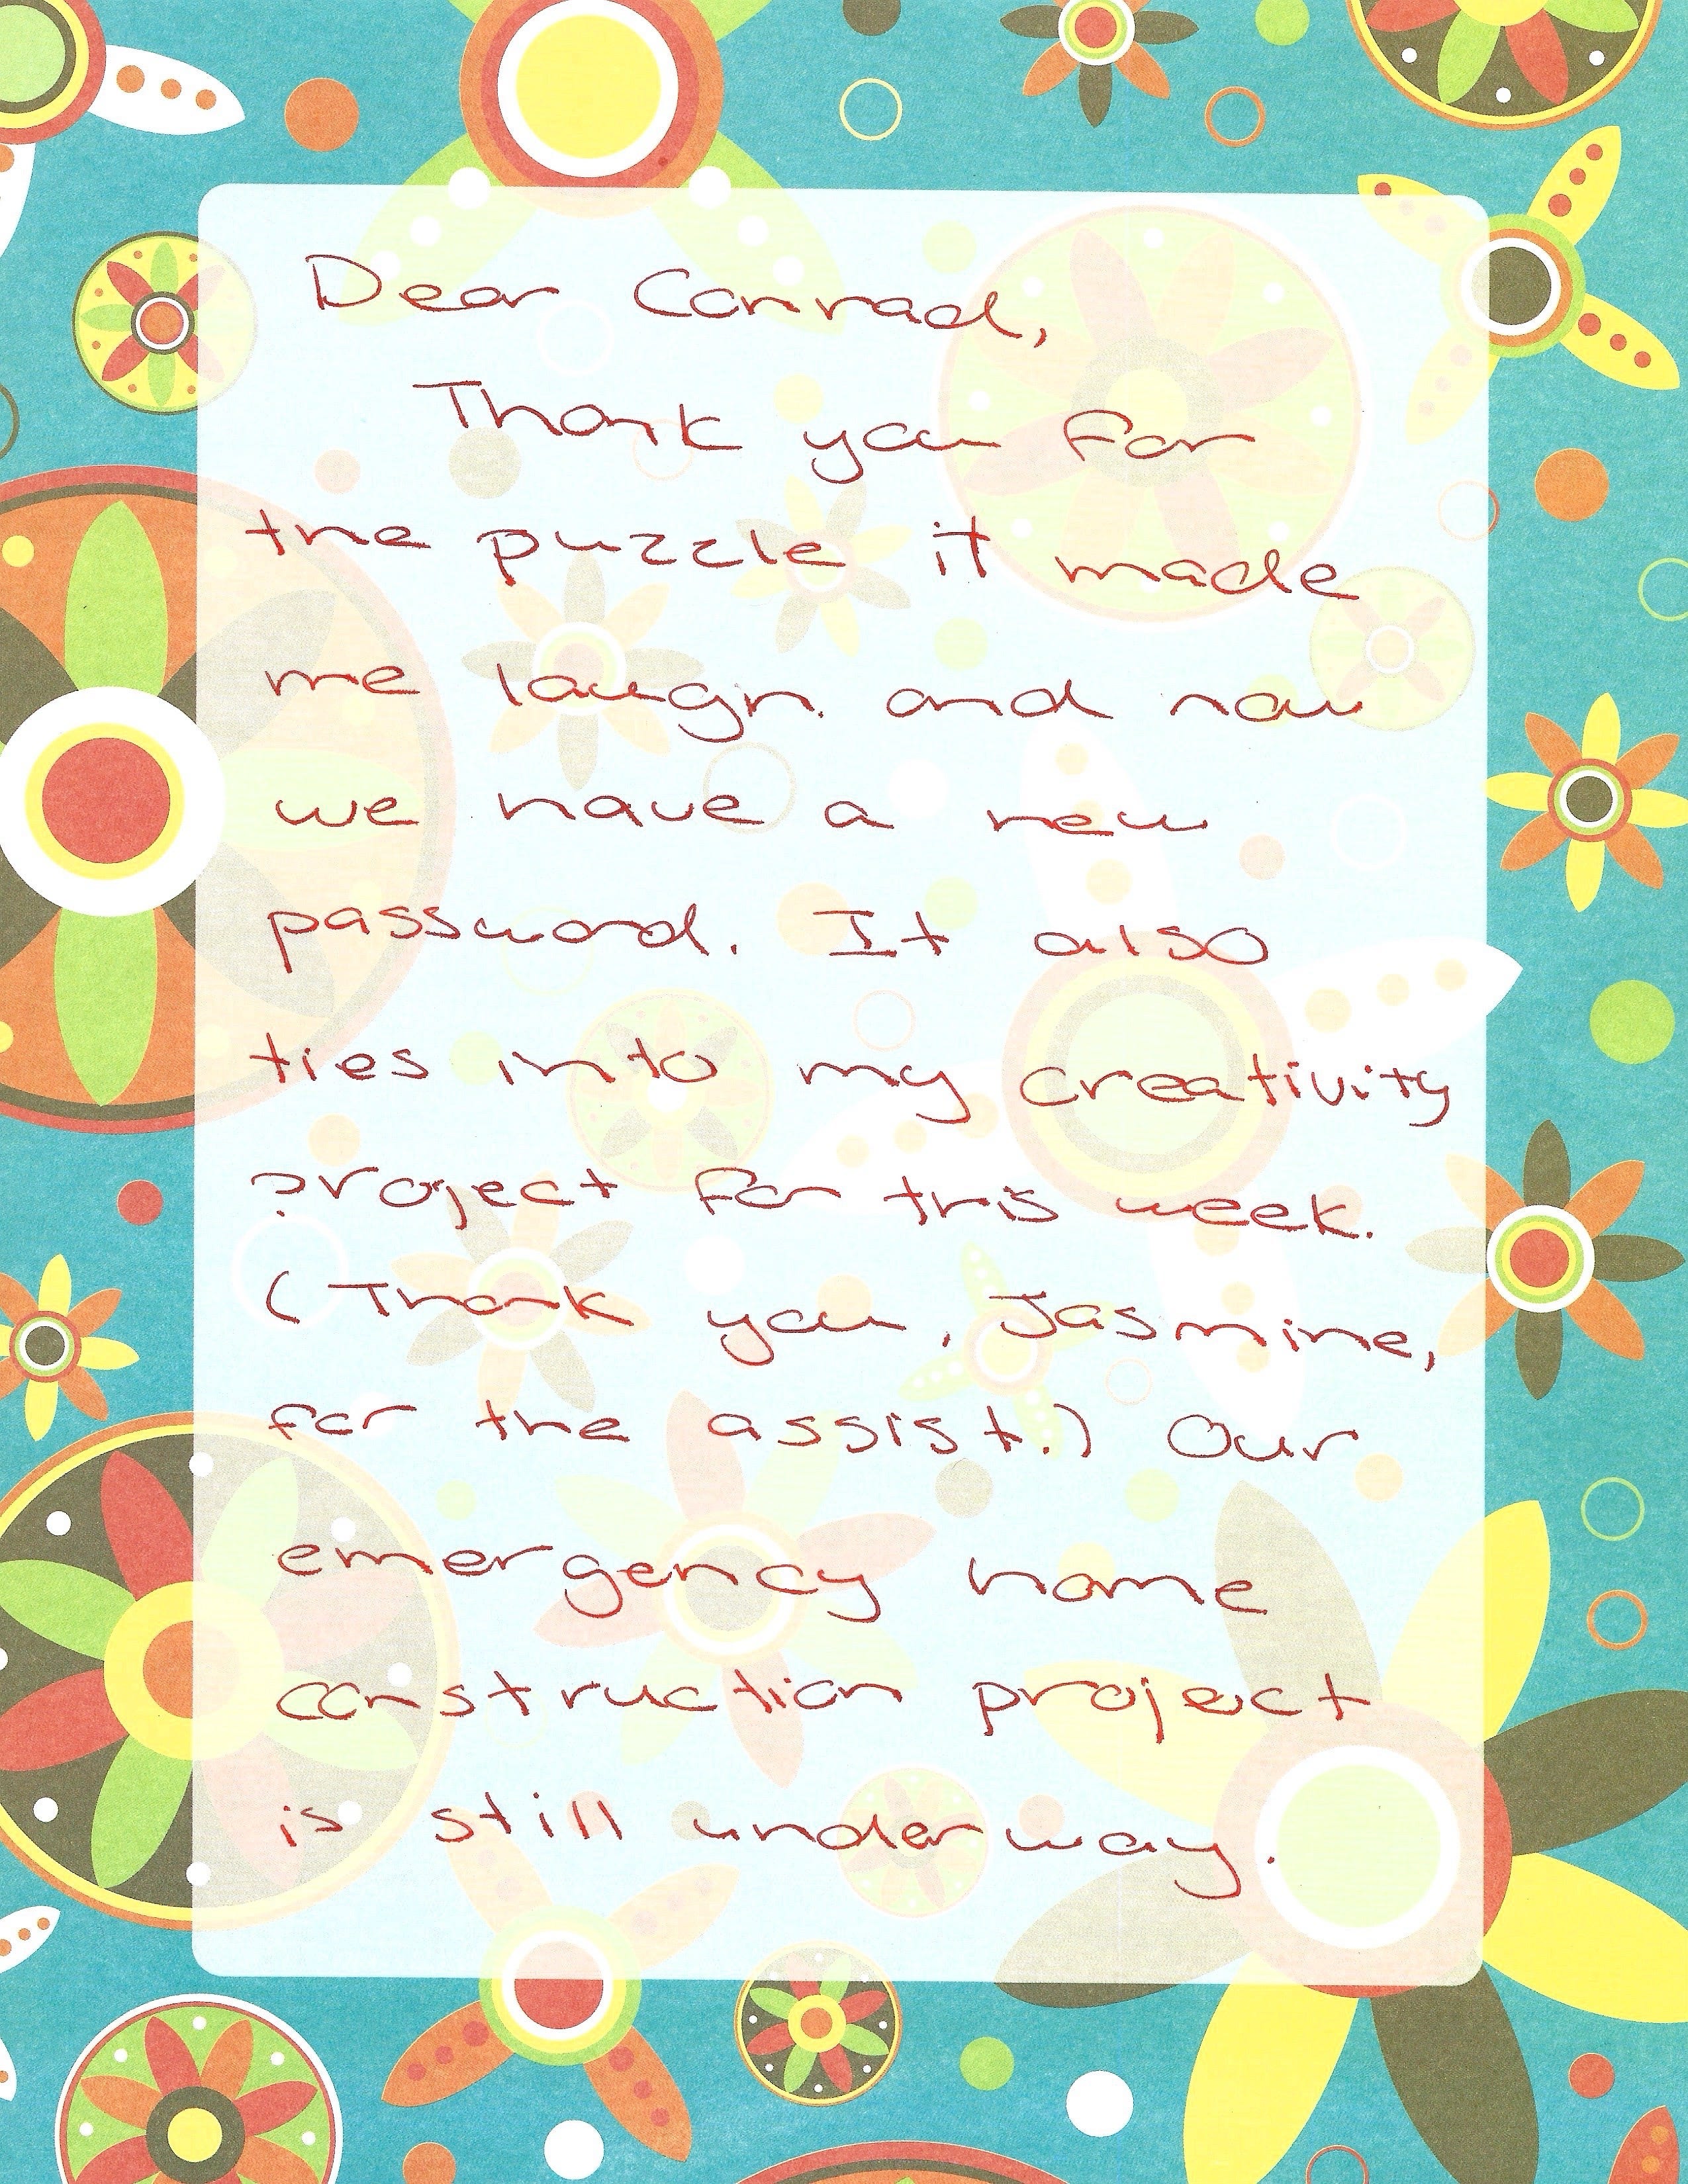 Dear Conrad,
Thank you for
the puzzle it made
me laugh and now
we have a new
password. It also
ties into my creativity
project for this week.
(Thank you, Jasmine,
for the assist.) Our
emergency home
construction project
is still underway.